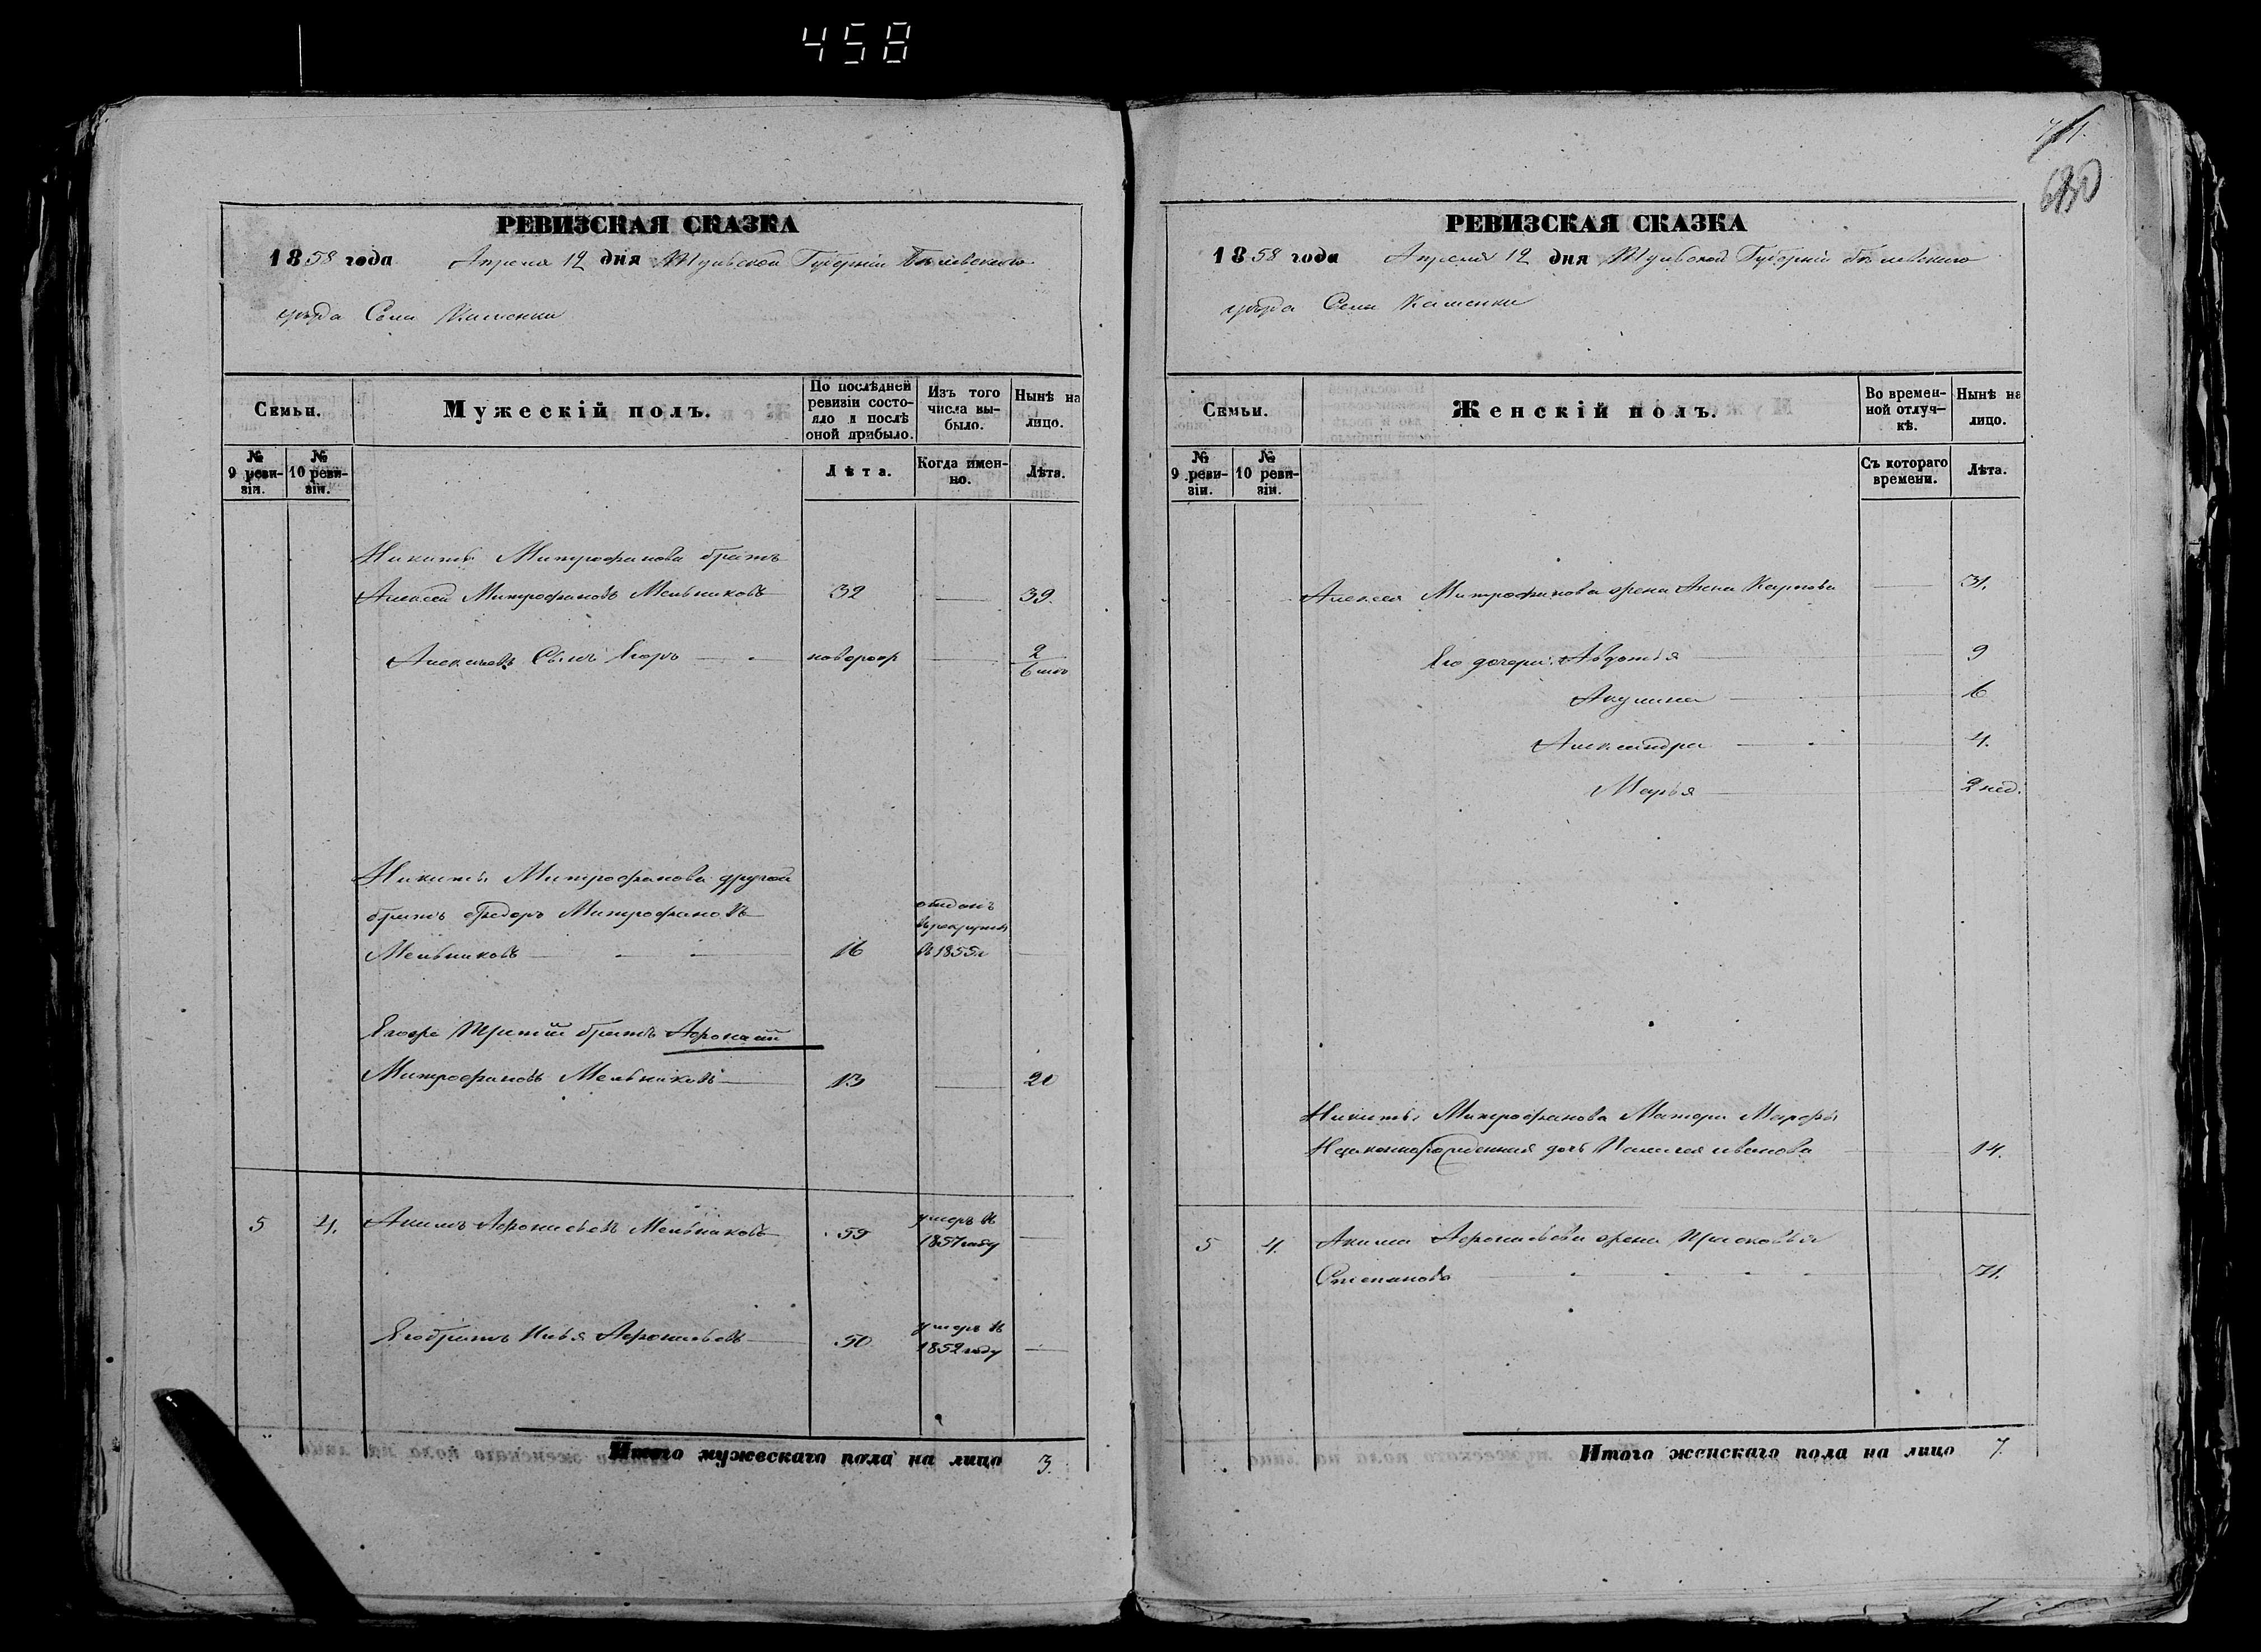 458
РЕВИЗСКАЯ СКАЗКА
1858 года Апреля 12 дня Тульской Губернии Белевскаго
уезда Села Каменки
Семьи.
Мужескій полъ.
По послѣдней ревизіи состояло и послѣ оной прибыло.
Изъ того числа выбыло.
Нынѣ на лицо.
№ 9 ревизіи.
№ 10 ревизіи.
Лѣта.
Когда именно.
Лѣта.
Никиты Митрофанова братъ
Алексей Митрофановъ Мельниковъ 32 — 39.
Алексеевъ Сынъ Егоръ — новорож — 2/6 мес
Никиты Митрофанова другой
братъ Федоръ Митрофановъ отданъ в рекруты
Мельниковъ — 16 въ 1855 г —
Егоже Третій братъ Афонасій
Митрофановъ Мельниковъ — 13 — 20
5 4. Акимъ Афонасьевъ Мельниковъ 59 умеръ в 1857 году —
Его братъ Илья Афонасьевъ — 50 умеръ в 1852 году —
Итого мужескаго пола на лицо 3.
680
РЕВИЗСКАЯ СКАЗКА
1858 года Апреля 12 дня Тульской Губерніи Белевскаго
уезда Села Каменки
Семьи.
Женскій полъ.
Во временной отлучкѣ.
Нынѣ на лицо.
№ 9 ревизіи.
№ 10 ревизіи.
Съ котораго времени.
Лѣта.
Алексея Митрофанова жена Анна Карпова — 31.
Его дочери: Авдотья — 9
Акулина — 6
Александра — 4.
Марья — 2 нед.
Никиты Митрофанова Матери Марфы
Незаконнорожденная дочь Пелагея иванова — 14.
5 4. Акима Афонасьева жена Прасковья
Степанова — 71.
Итого женскаго пола на лицо 7.